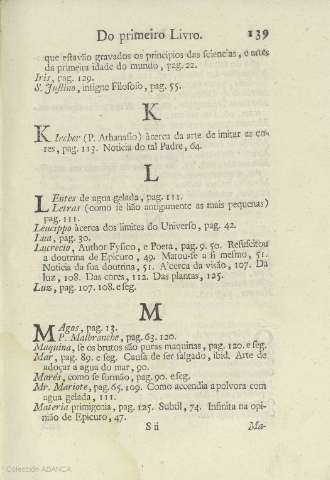 Do primeiro Livro. 139
que estavão gravados os principios das sciencias, e artes
da primeira idade do mundo, pag. 22.
Iris, pag. 129.
S. Justino, insigne Filosofo, pag. 55.
K
Kircher (P. Athanasio) àcerca da arte de imitar as co-
res, pag. 113. Noticia do tal Padre, 64.
L
Lentes de agua gelada, pag. 111.
Letras (como se lião antigamente as mais pequenas)
pag. 111.
Leucippo àcerca dos limites do Universo, pag. 42.
Lua, pag. 30.
Lucrecio, Author Fysico, e Poeta, pag. 9. 50. Resuscitou
a doutrina de Epicuro, 49. Matou-se a si mesmo, 51.
Noticia da sua doutrina, 51. A'cerca da visão, 107. Da
luz, 108. Das cores, 112. Das plantas, 125.
Luz, pag. 107. 108. e seg.
M
Magas, pag. 13.
P. Malbranche, pag. 63. 120.
Maquina, se os brutos são puras maquinas, pag. 120. e seg.
Mar, pag. 89. e seg. Causa de ser salgado, ibid. Arte de
adoçar a agua do mar, 90.
Marés, como se formão, pag. 90. e seg.
Mr. Mariote, pag. 65. 109. Como accendia a polvora com
agua gelada, 111.
Materia primigenia, pag. 125. Subtil, 74. Infinita na opi-
nião de Epicuro, 47.
S ii Ma-
Colección ABANCA